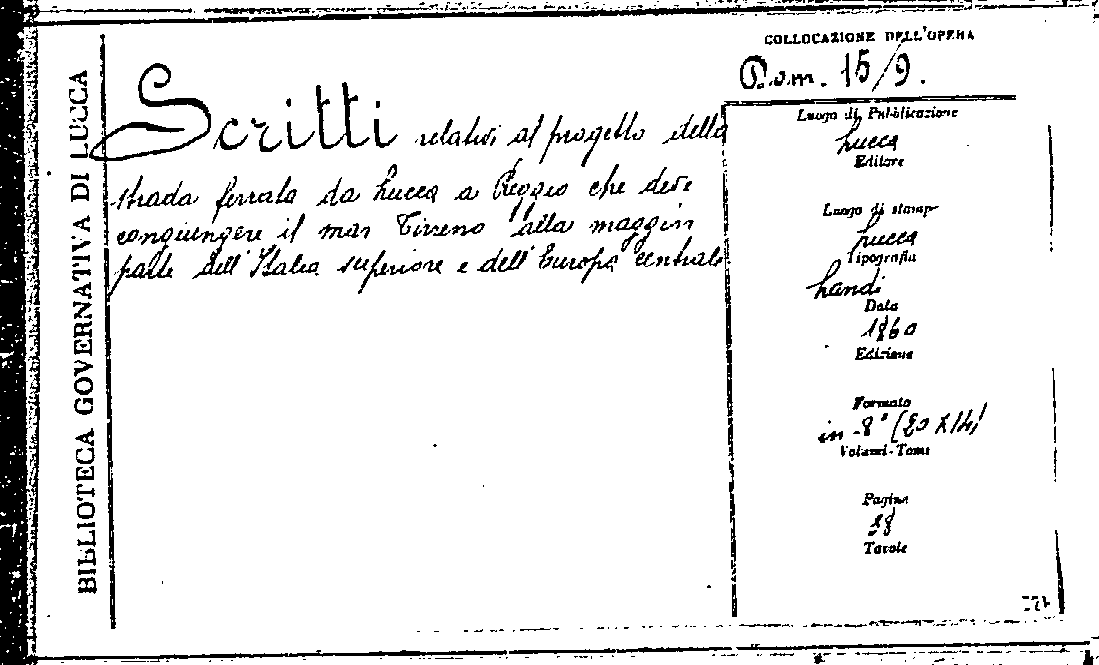 BIBLIOTECA GOVERNATIVA DI LUCCA
COLLOCAZIONE DELL'OPERA
15/9.
Scritti relativi al progetto della
strada ferrata da Lucca a Reggio che deve
congiungere il mar Tirreno alla maggior
parte dell'Italia superiore e dell'Europa centrale
Luogo di Pubblicazione
Lucca
Editore
Luogo di stampa
Lucca
Tipografia
Landi
Data
1860
Edizione
Formato
in-8° (20 x 14)
Volumi-Tomi
Pagine
38
Tavole